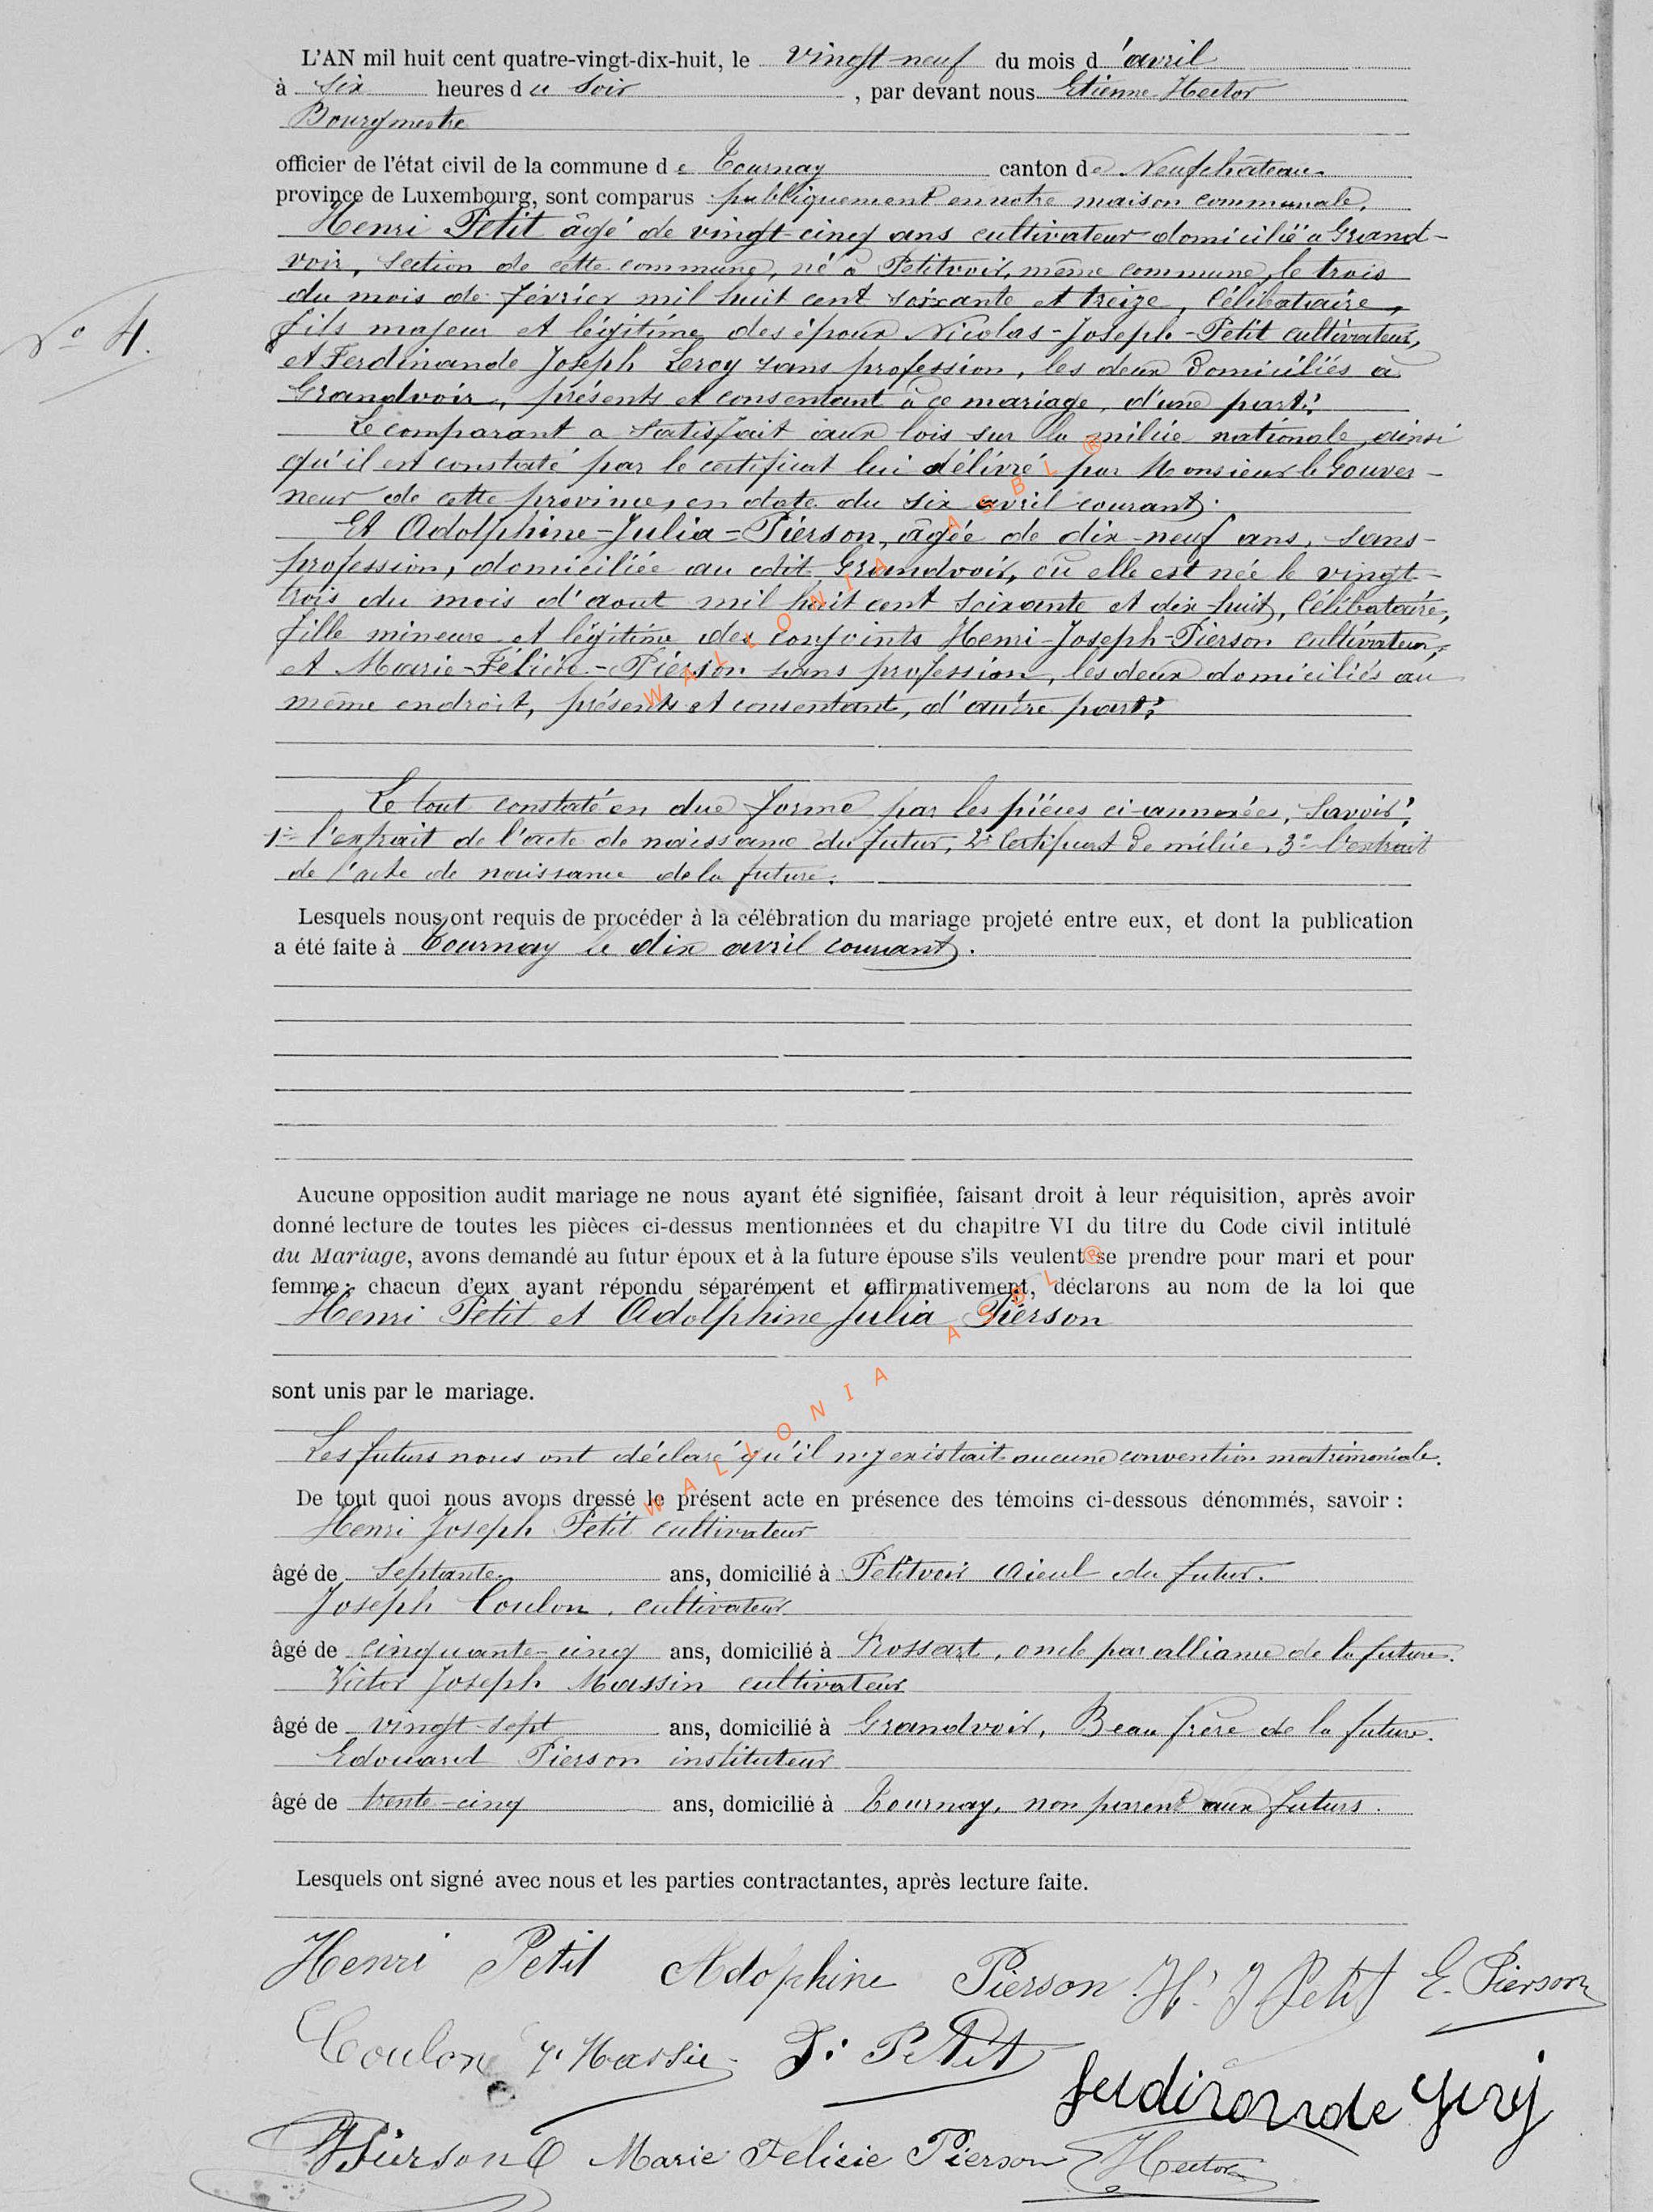 L'AN mil huit cent quatre-vingt-dix-huit, le vingt-neuf du mois d'avril
à six heures du soir, par devant nous Etienne Hector
Bourgmestre
officier de l'état civil de la commune de Tournay canton de Neufchateau
province de Luxembourg, sont comparus publiquement en notre maison communale,
Henri Petit âgé de vingt-cinq ans cultivateur domicilié à Grand-
voir, section de cette commune, né à Petitvoir, même commune, le trois
du mois de février mil huit cent soixante et treize, célibataire,
N° 4.
fils majeur et légitime des époux Nicolas-Joseph-Petit cultivateur,
et Ferdinande Joseph Leroy sans profession, les deux domiciliés à
Grandvoir, présents et consentant à ce mariage, d'une part;
Le comparant a satisfait aux lois sur la milice nationale, ainsi
qu'il est constaté par le certificat lui délivré par Monsieur le Gouver-
neur de cette province, en date du six avril courant.
Et Adolphine-Julia-Pierson, âgée de dix-neuf ans, sans-
profession, domiciliée au dit Grandvoir, où elle est née le vingt-
trois du mois d'aout mil huit cent soixante et dix-huit, célibataire,
fille mineure et légitime des conjoints Henri-Joseph-Pierson cultivateur,
et Marie-Félicie-Pierson sans profession, les deux domiciliés au
même endroit, présents et consentant, d'autre part;
Le tout constaté en due forme par les pièces ci-annexées, Savoir:
1° l'extrait de l'acte de naissance du futur, 2° Certificat de milice, 3° l'extrait
de l'acte de naissance de la future.
Lesquels nous ont requis de procéder à la célébration du mariage projeté entre eux, et dont la publication
a été faite à Tournay le dix avril courant.
Aucune opposition audit mariage ne nous ayant été signifiée, faisant droit à leur réquisition, après avoir
donné lecture de toutes les pièces ci-dessus mentionnées et du chapitre VI du titre du Code civil intitulé
du Mariage, avons demandé au futur époux et à la future épouse s'ils veulent se prendre pour mari et pour
femme; chacun d'eux ayant répondu séparément et affirmativement, déclarons au nom de la loi que
Henri Petit et Adolphine Julia Pierson
sont unis par le mariage.
Les futurs nous ont déclaré qu'il n'y existait aucune convention matrimoniale.
De tout quoi nous avons dressé le présent acte en présence des témoins ci-dessous dénommés, savoir :
Henri Joseph Petit cultivateur
âgé de septante ans, domicilié à Petitvoir aieul du futur.
Joseph Coulon, cultivateur
âgé de cinquante-cinq ans, domicilié à Rossart, oncle par alliance de la future.
Victor Joseph Massin cultivateur
âgé de vingt-sept ans, domicilié à Grandvoir, Beau frère de la future.
Edouard Pierson instituteur
âgé de trente-cinq ans, domicilié à Tournay, non parent aux futurs.
Lesquels ont signé avec nous et les parties contractantes, après lecture faite.
Henri Petit Adophine Pierson H. J Petit E. Pierson
Coulon Petit
Marie Felicie Pierson Hector
WALLONIA ASBL ®
WALLONIA ASBL ®